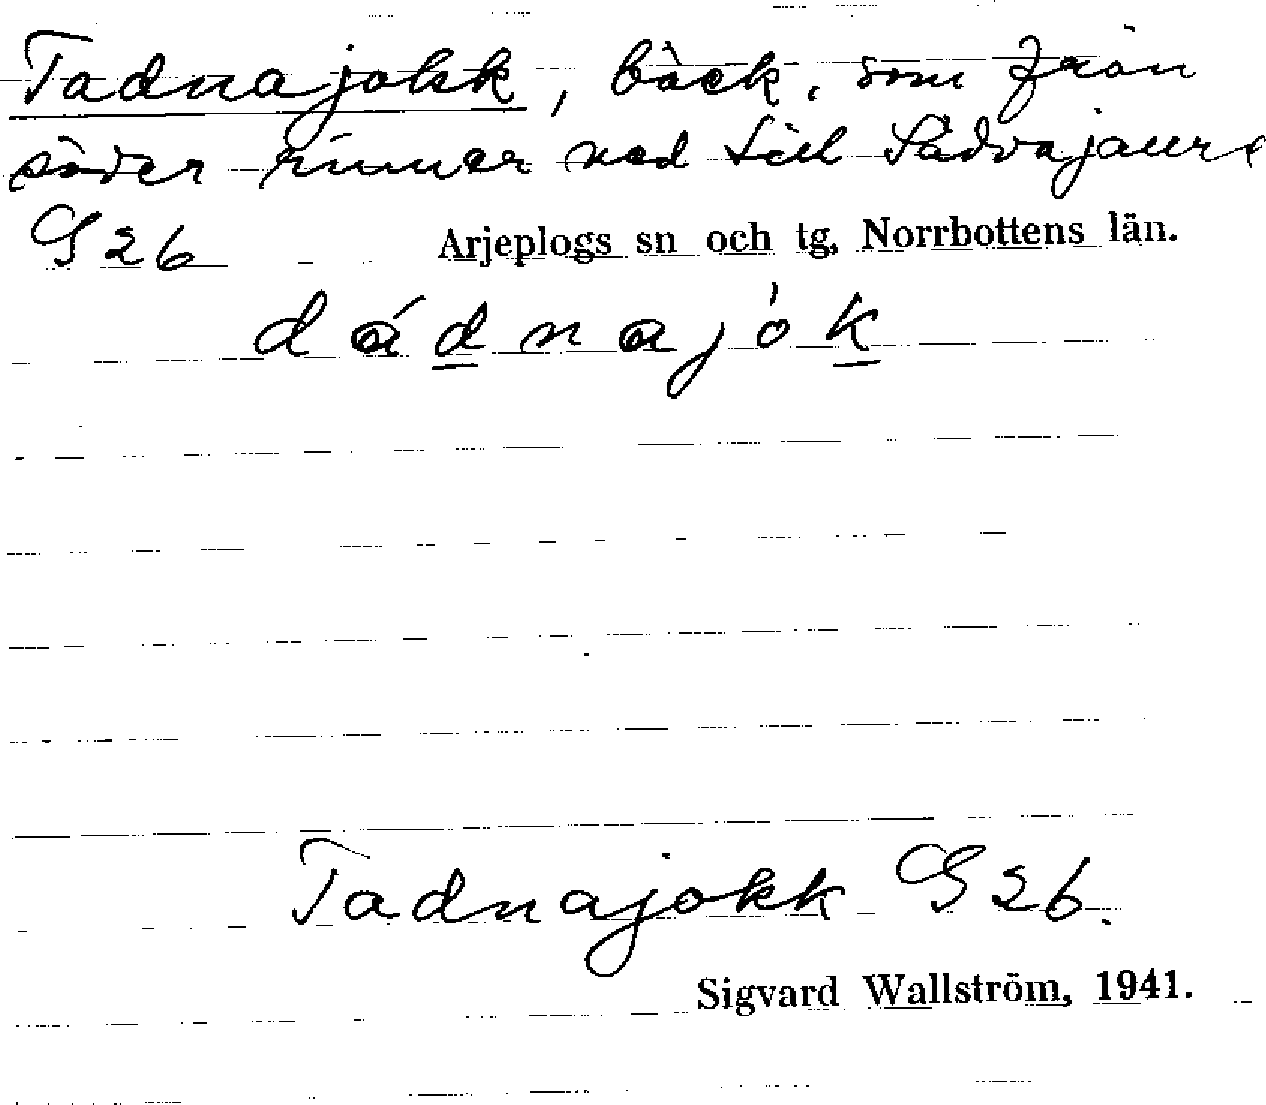 Tadnajokk, bäck, som från
söder rinner ned till Sädvajaure
G 26 Arjeplogs sn och tg. Norrbottens län.
dádnajók
Tadnajokk G 26.
Sigvard Wallström, 1941.